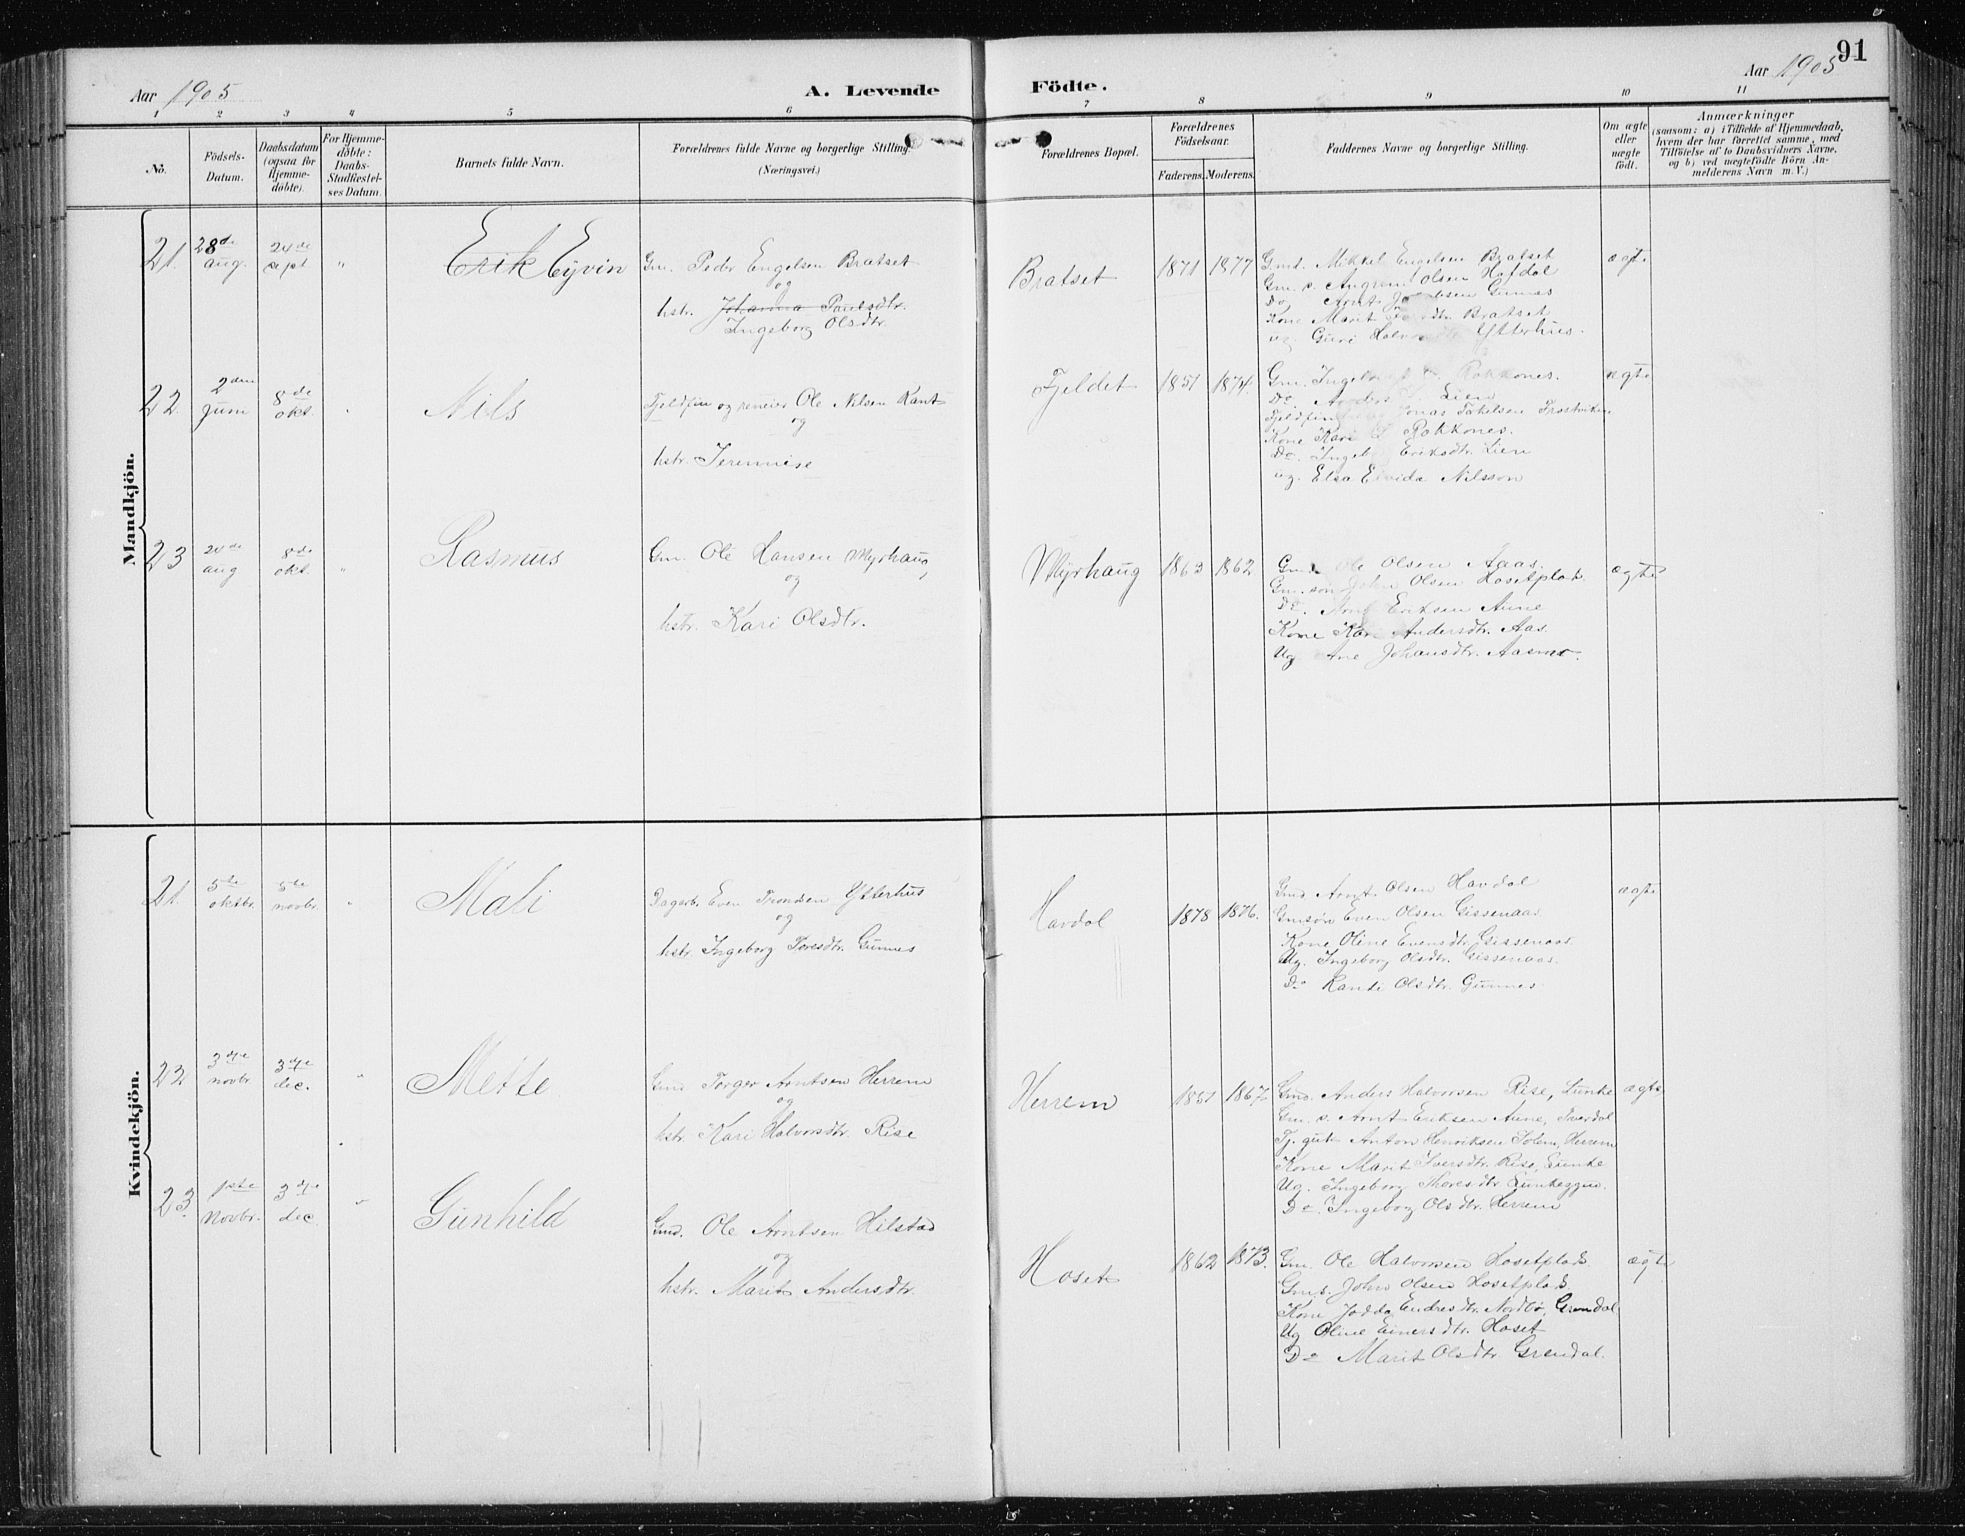 91
Aar 1905
A. Levende
Födte.
Aar 1905
1 2 3 4 5 6 7 8 9 10 11
No.
Födsels-
Datum.
Daabsdatum
(ogsaa for
Hjemme-
döbte).
For Hjemme-
döbte:
Daabs-
Stadfæstel-
ses Datum.
Barnets fulde Navn.
Forældrenes fulde Navne og borgerlige Stilling
(Næringsvei.)
Forældrenes Bopæl.
Forældrenes
Födselsaar.
Faderens. Moderens.
Faddernes Navne og borgerlige Stilling.
Om ægte
eller
uægte
födt.
Anmærkninger
(saasom: a) i Tilfælde af Hjemmedaab,
hvem der har forrettet samme, med
Tilföielse af to Daabsvidners Navne,
og b) ved uægtefödte Börn An-
melderens Navn m. V.)
Mandkjön.
21.
28de
aug.
24de
sept
"
Erik Eyvin
Gm. Peder Engelsen Bratset
og
hstr. Johanna Paulsdtr.
Ingeborg Olsdtr
Bratset
1871
1877
Gmd. Mikkel Engelsen Bratset
Gm. s. Angrim Olsen Hafdal
Do Arnt Gunnes
Kone Marit Bratset
ug Guri Ytterhus.
ægte
22
2den
juni
8de
okt.
"
Nils
Fjeldfin og reneier Ole Nilsen Kant
og
hstr.
Fjeldet
1851
1874.
Gm. Rokkones.
Do Anders Lien
Fjeldfin Jonas Trostviken
Kone Kari Rokkones.
Do. Eriksdtr Lien
ug. Elsa Nilsson
ægte
23
20de
aug
8de
okt.
"
Rasmus
Gm. Ole Hansen Myrhaug,
og
hstr. Kari Olsdtr.
Myrhaug
1863
1862
Gmd. Ole Olsen Aaas.
Gm. søn John Olsen Hosetplads
Do. Arnt Eriksen Aune
Kone Kari Andersdtr. Aas.
Ug Ane Johansdtr. Aasmo.
ægte
Kvindekjön.
21.
5te
oktbr.
5te
novbr.
"
Mali
Dagarb. Even Trondsen Ytterhus
og
hstr. Ingeborg Toresdtr. Gunnes
Havdal
1878
1876.
Gmd Arnt Olsen Havdal
Gmsøn Even Olsen Gissenaas.
Kone Oline Evensdtr. Gissenaas.
Ug. Ingeborg Olsdtr. Gissenaas.
Do Randi Olsdtr. Gunnes
ægte
22
3die
novbr.
3die
dec.
"
Mette
Gmd Torger Arntsen Herrem
og
hstr. Kari Halvorsdtr. Rise
Herrem
1851
1867.
Gmd. Anders Halvorsen Rise, Lunke
Gm. s. Arnt Eriksen Aune, Tverdal
Tj. gut Anton Henriksen Solem, Herrem
Kone Marit Iversdtr. Rise, Lunke
Ug. Ingeborg Lunkeggen.
Do. Ingeborg Olsdtr. Herrem
ægte
23.
1ste
Novbr.
3die
dec.
"
Gunhild
Gmd. Ole Arntsen Hilstad
og
hstr. Marit Andersdtr.
Hoset
1862
1873.
Gm. Ole Halvorsen Hosetplads.
Gms. John Olsen Hosetplads
Kone Jodda Endresdtr. Nordbø, Grendal
Ug Oline Einersdtr. Hoset
Do Marit Olsdtr. Grendal.
ægte